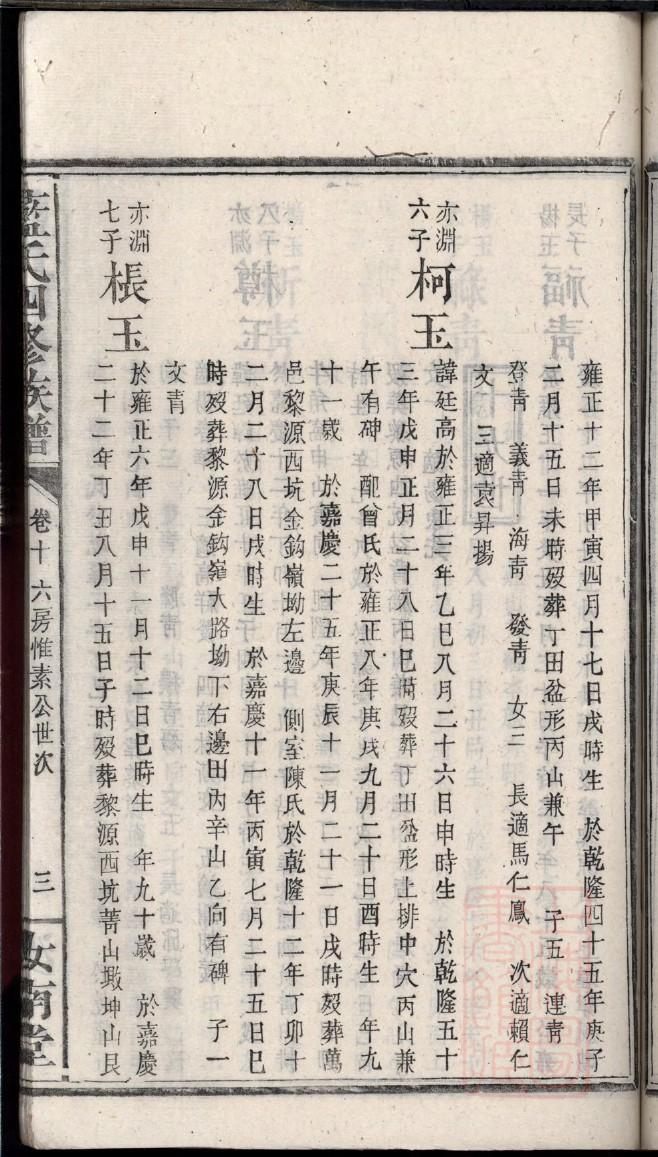 雍正十二年甲寅四月十七日戌時生　於乾隆四十五年庚子
二月十五日未時歿葬丁田盆形丙山兼午　子五　連青
登青　義青　海青　發青　女三　長適馬仁鳳　次適賴仁
文　三適袁昇揚
亦淵六子　柯玉　諱廷高於雍正三年乙巳八月二十六日申時生　於乾隆五十
三年戊申正月二十八日巳時歿葬丁田盆形上排中穴丙山兼
午有碑　配曾氏於雍正八年庚戌九月二十日酉時生　年九
十一歲　於嘉慶二十五年庚辰十一月二十一日戌時歿葬萬
邑黎源西坑金鈎嶺坳左邊　側室陳氏於乾隆十二年丁卯十
二月二十八日戌時生　於嘉慶十一年丙寅七月二十五日巳
時歿葬黎源金鈎嶺大路坳下右邊田內辛山乙向有碑　子一
文青
亦淵七子　棖玉　於雍正六年戊申十一月十二日巳時生　年九十歲　於嘉慶
二十二年丁丑八月十五日子時歿葬黎源西坑菁山墩坤山艮
藍氏四修族譜　卷十　六房惟素公世次　三　汝南堂